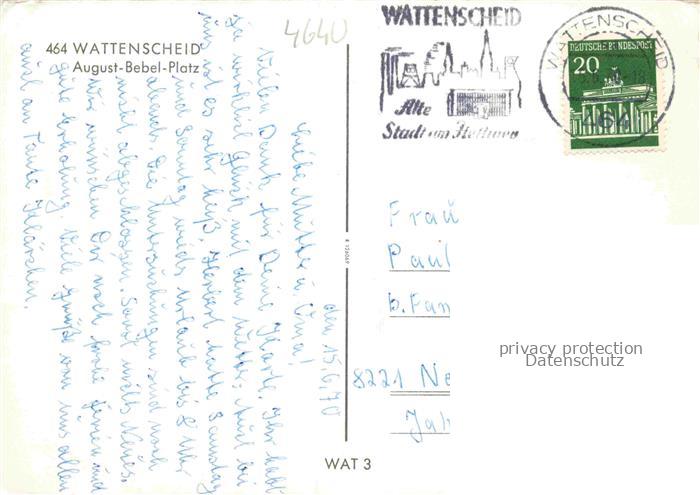 464 WATTENSCHEID
August-Bebel-Platz
4640
WATTENSCHEID
Alte
Stadt am Hellweg
WATTENSCHEID
464
DEUTSCHE BUNDESPOST
20
den 15.6.70
Liebe Mutter u. Oma!
Vielen Dank für Deine Karte. Ihr habt
ja wirklich Glück mit dem Wetter. Auch bei
uns ist es sehr heiß. Herbert hatte Samstag
und Sonntag Urlaub bis 8 Uhr
abends. Die Untersuchungen sind noch
nicht abgeschlossen. Sonst nichts Neues.
Wir wünschen Dir noch frohe Ferien und
gute Erholung. Viele Grüße von uns allen
auch an Tante Klärchen.
Frau
Paul
b. Fam
8221 Ne
Jah
privacy protection
Datenschutz
WAT 3